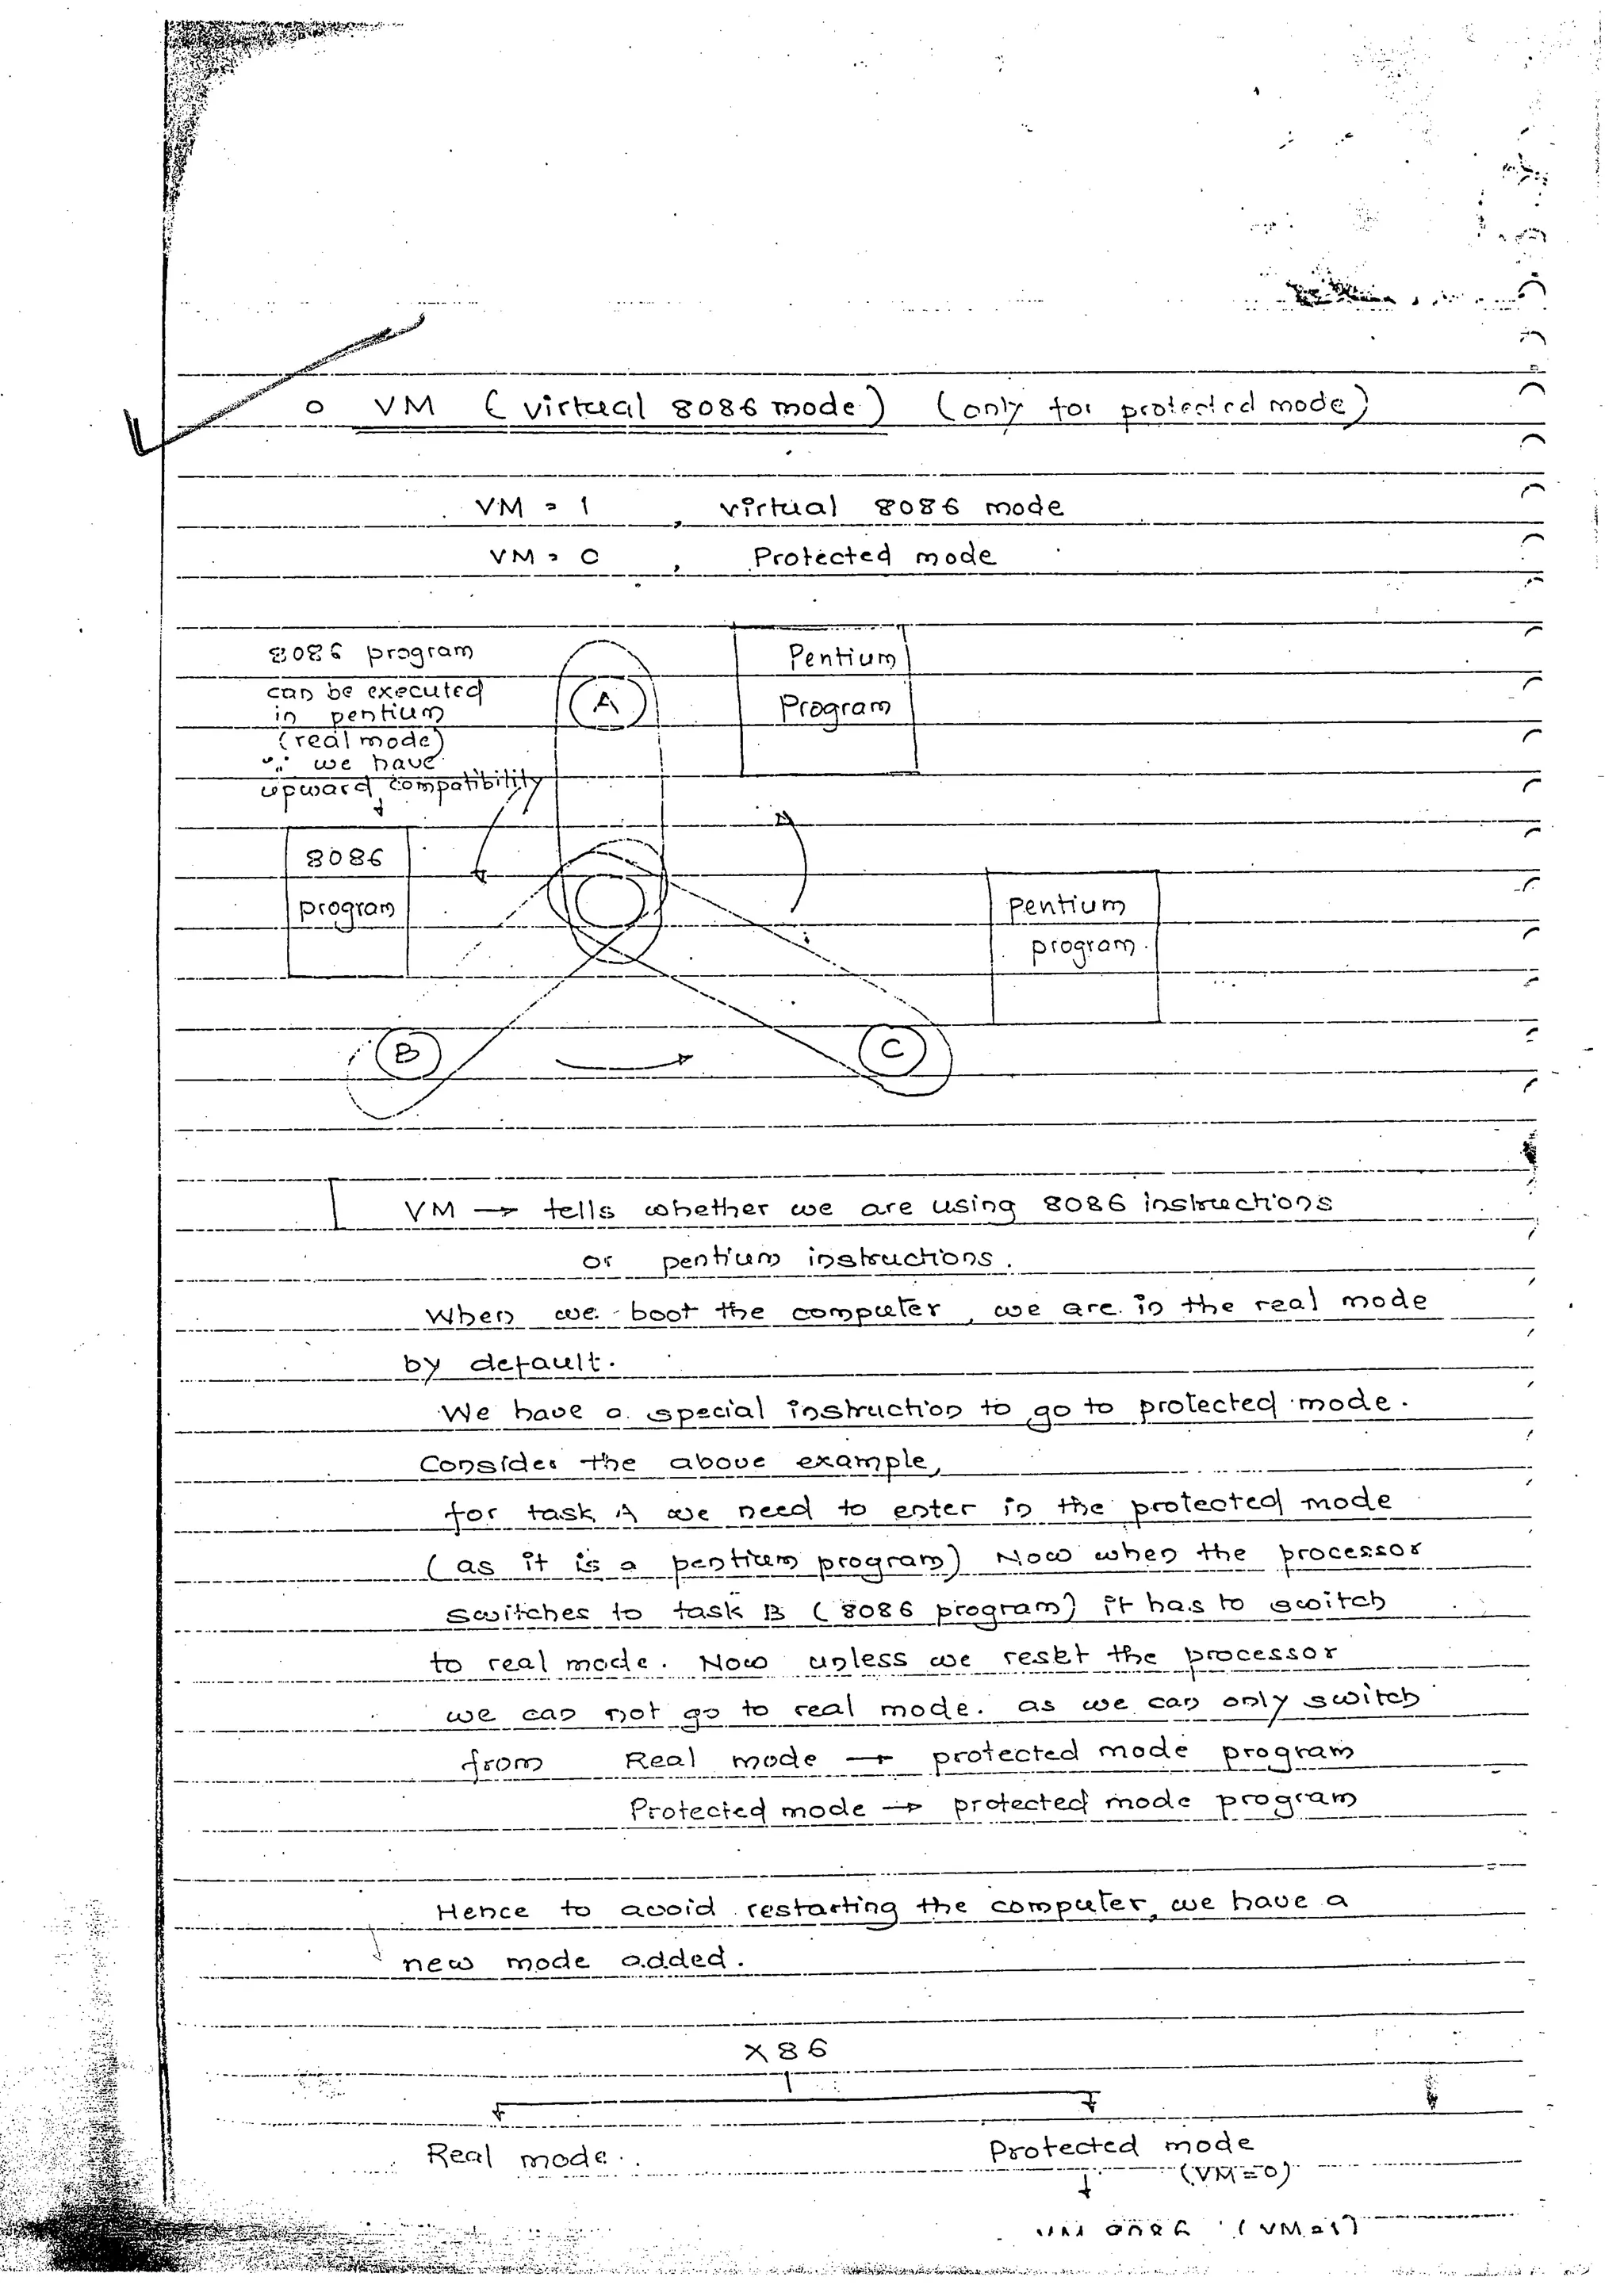 o VM (virtual 8086 mode) (only for protected mode)
VM = 1 , virtual 8086 mode
VM = 0 , Protected mode
8086 program
can be executed
in pentium
(real mode)
∵ we have
upward compatibility
A
Pentium
Program
8086
program
pentium
program.
B
C
VM → tells whether we are using 8086 instructions
or pentium instructions.
When we boot the computer, we are in the real mode
by default.
We have a special instruction to go to protected mode.
Consider the above example,
for task A we need to enter in the protected mode
(as it is a pentium program) Now when the processor
switches to task B (8086 program) it has to switch
to real mode. Now unless we reset the processor
we can not go to real mode. as we can only switch
from Real mode → protected mode program
Protected mode → protected mode program
Hence to avoid restarting the computer, we have a
new mode added.
X86
Real mode.
Protected mode
(VM=0)
VM 8086 (VM=1)